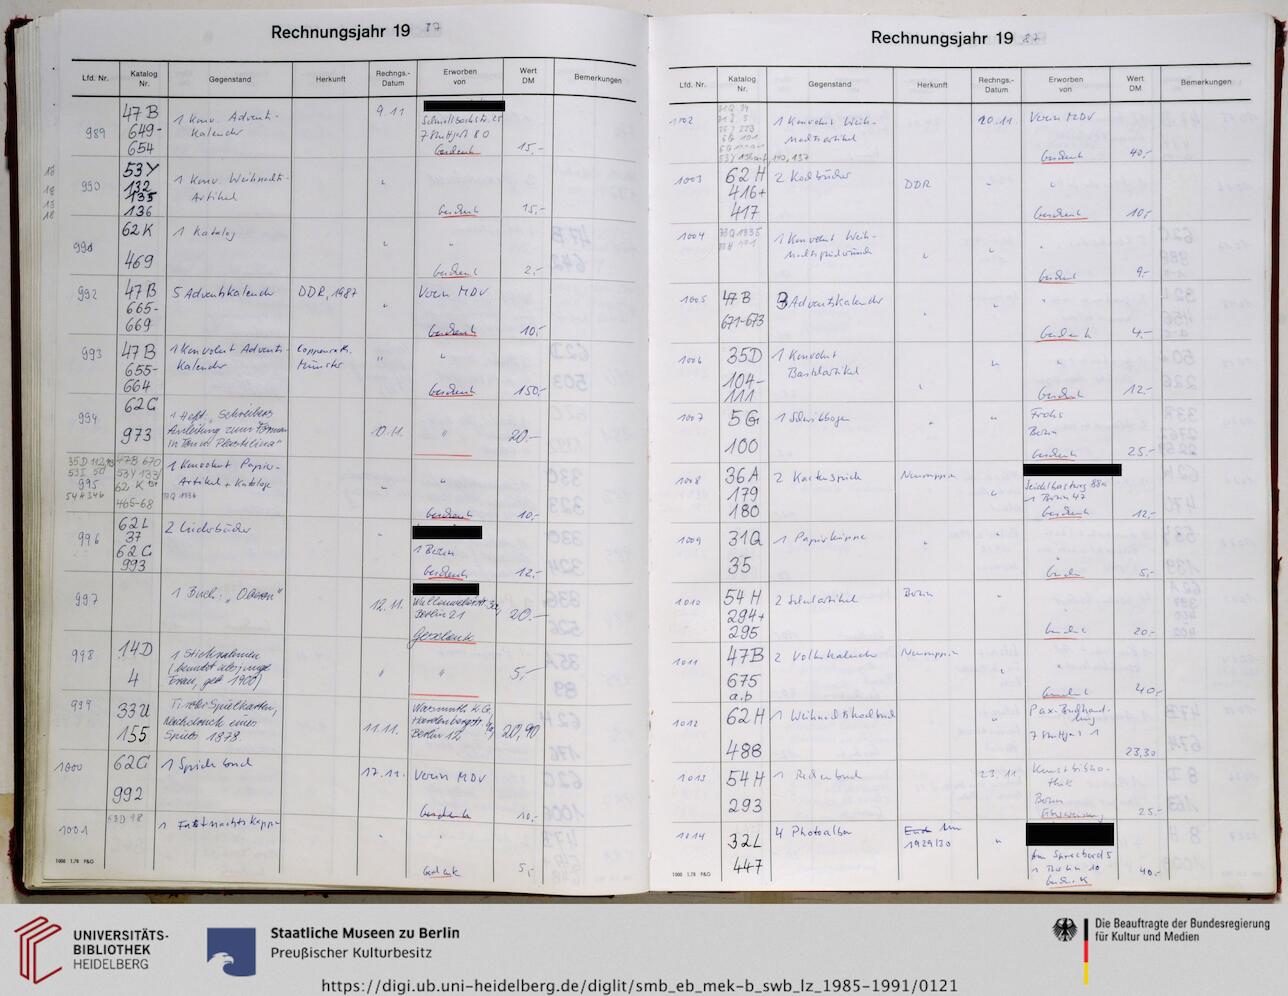 Rechnungsjahr 19 87
Lfd. Nr. Katalog Nr. Gegenstand Herkunft Rechngs.-Datum Erworben von Wert DM Bemerkungen
989 47 B 649-654 1 Konv. Advents-Kalender 9.11 7 Stuttgart 80 Geschenk 15,-
990 53Y 132 135 136 1 Konv. Weihnachts-Artikel " Geschenk 15,-
991 62 K 469 1 Katalog " " Geschenk 2,-
992 47 B 665-669 5 Adventskalender DDR, 1987 " Verein MDV Geschenk 10,-
993 47 B 655-664 1 Konvolut Advents-Kalender Coppenrath, Münster " " Geschenk 150,-
994 62 C 973 1 Heft "Schreibers Anleitung zum Formen in Ton u. Plastilina" 10.11. " 20.-
995 35D 112, 53I 50 54H 346 47B 670 53Y 133 62 K 465-68 1 Konvolut Papier-Artikel + Kataloge " " Geschenk 10,-
996 62 L 37 62 C 993 2 Liederbücher " 1 Berlin Geschenk 12,-
997 1 Buch: "Oberon" 12.11. Berlin 21 Geschenk 20.-
998 14D 4 1 Stickrahmen (benutzt als junge Frau, geb 1900) " " 5,-
999 33U 155 Tiroler Spielkarten, Nachdruck eines Spiels 1878. 11.11. Wasmuth K.G, Hardenbergstr. Berlin 12 20,90
1000 62C 992 1 Spielebuch 17.11. Verein MDV Geschenk 10,-
1001 63D 98 1 Fastnachtskappe " " Geschenk 5,-
1000 1.78 P&G
Rechnungsjahr 19 87
Lfd. Nr. Katalog Nr. Gegenstand Herkunft Rechngs.-Datum Erworben von Wert DM Bemerkungen
1002 1 Konvolut Weih-nachtsartikel 20.11 Verein MDV Geschenk 40,-
1003 62 H 416+ 417 2 Kochbücher DDR " " Geschenk 10,-
1004 1 Konvolut Weih- " " " Geschenk 9.-
1005 47 B 671-673 3 Adventskalender " " " Geschenk 4.-
1006 35D 104-111 1 Konvolut Bastelartikel " " " Geschenk 12.-
1007 5G 100 1 Schreibbogen " Frohs Berlin Geschenk 25.-
1008 36A 179 180 2 Kartenspiele Neuruppin " Seidelbastweg 88a 1 Berlin 47 Geschenk 12,-
1009 31Q 35 1 Papierkrippe " " " Geschenk 5,-
1010 54 H 294+ 295 2 Schulartikel Berlin " " Geschenk 20.-
1011 47B 675 a.b 2 Volkskalender Neuruppin " " Geschenk 40,-
1012 62 H 488 1 Weihnachtskochbuch " Pax-Buchhand-lung 7 Stuttgart 1 23,30
1013 54 H 293 1 Rechenbuch 23.11. Kunstbiblio-thek Berlin 25.-
1014 32L 447 4 Photoalben 1929/30 " 1 Berlin 10 Geschenk 40,-
1000 1.78 P&G
UNIVERSITÄTS-
BIBLIOTHEK
HEIDELBERG
Staatliche Museen zu Berlin
Preußischer Kulturbesitz
Die Beauftragte der Bundesregierung
für Kultur und Medien
https://digi.ub.uni-heidelberg.de/diglit/smb_eb_mek-b_swb_lz_1985-1991/0121